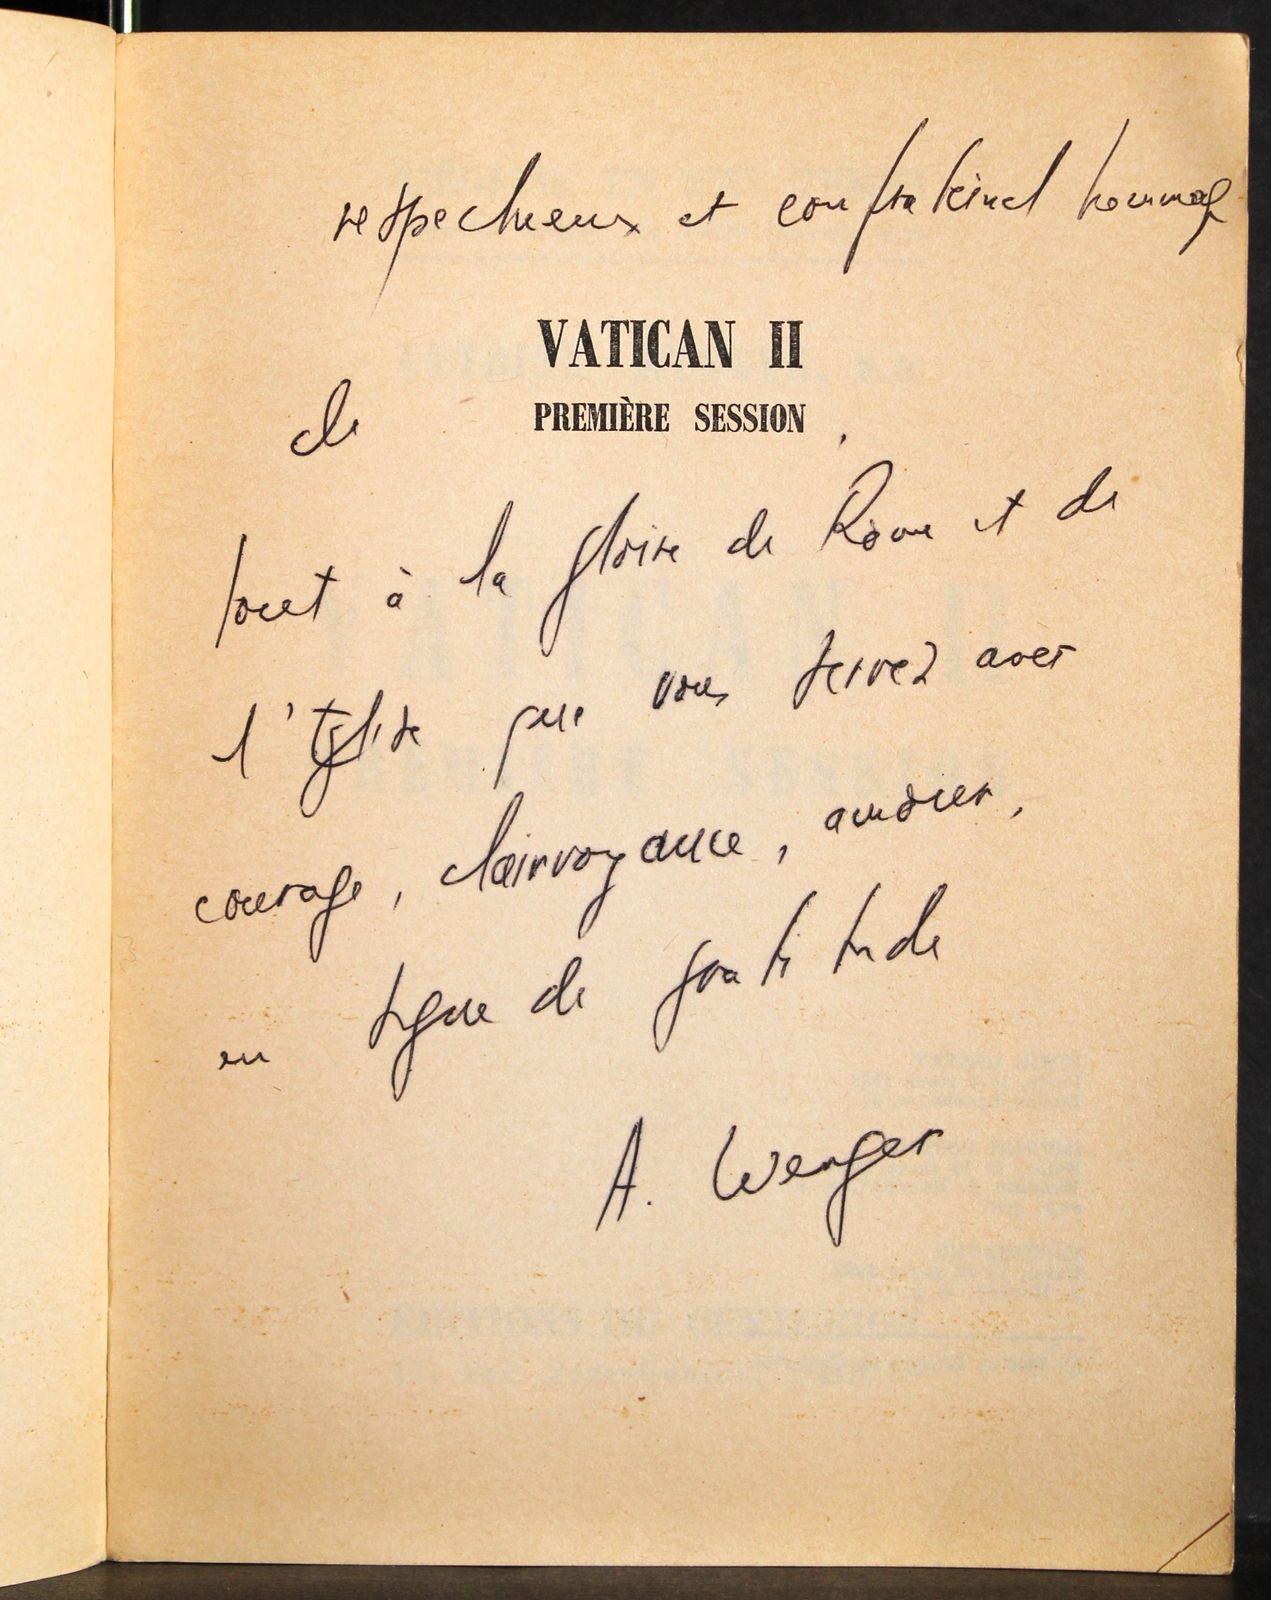 respectueux et confraternel hommage
de
VATICAN II
PREMIÈRE SESSION
tout à la gloire de Rome et de
l'Eglise que vous servez avec
courage, clairvoyance, amour,
en signe de gratitude
A. Wenger